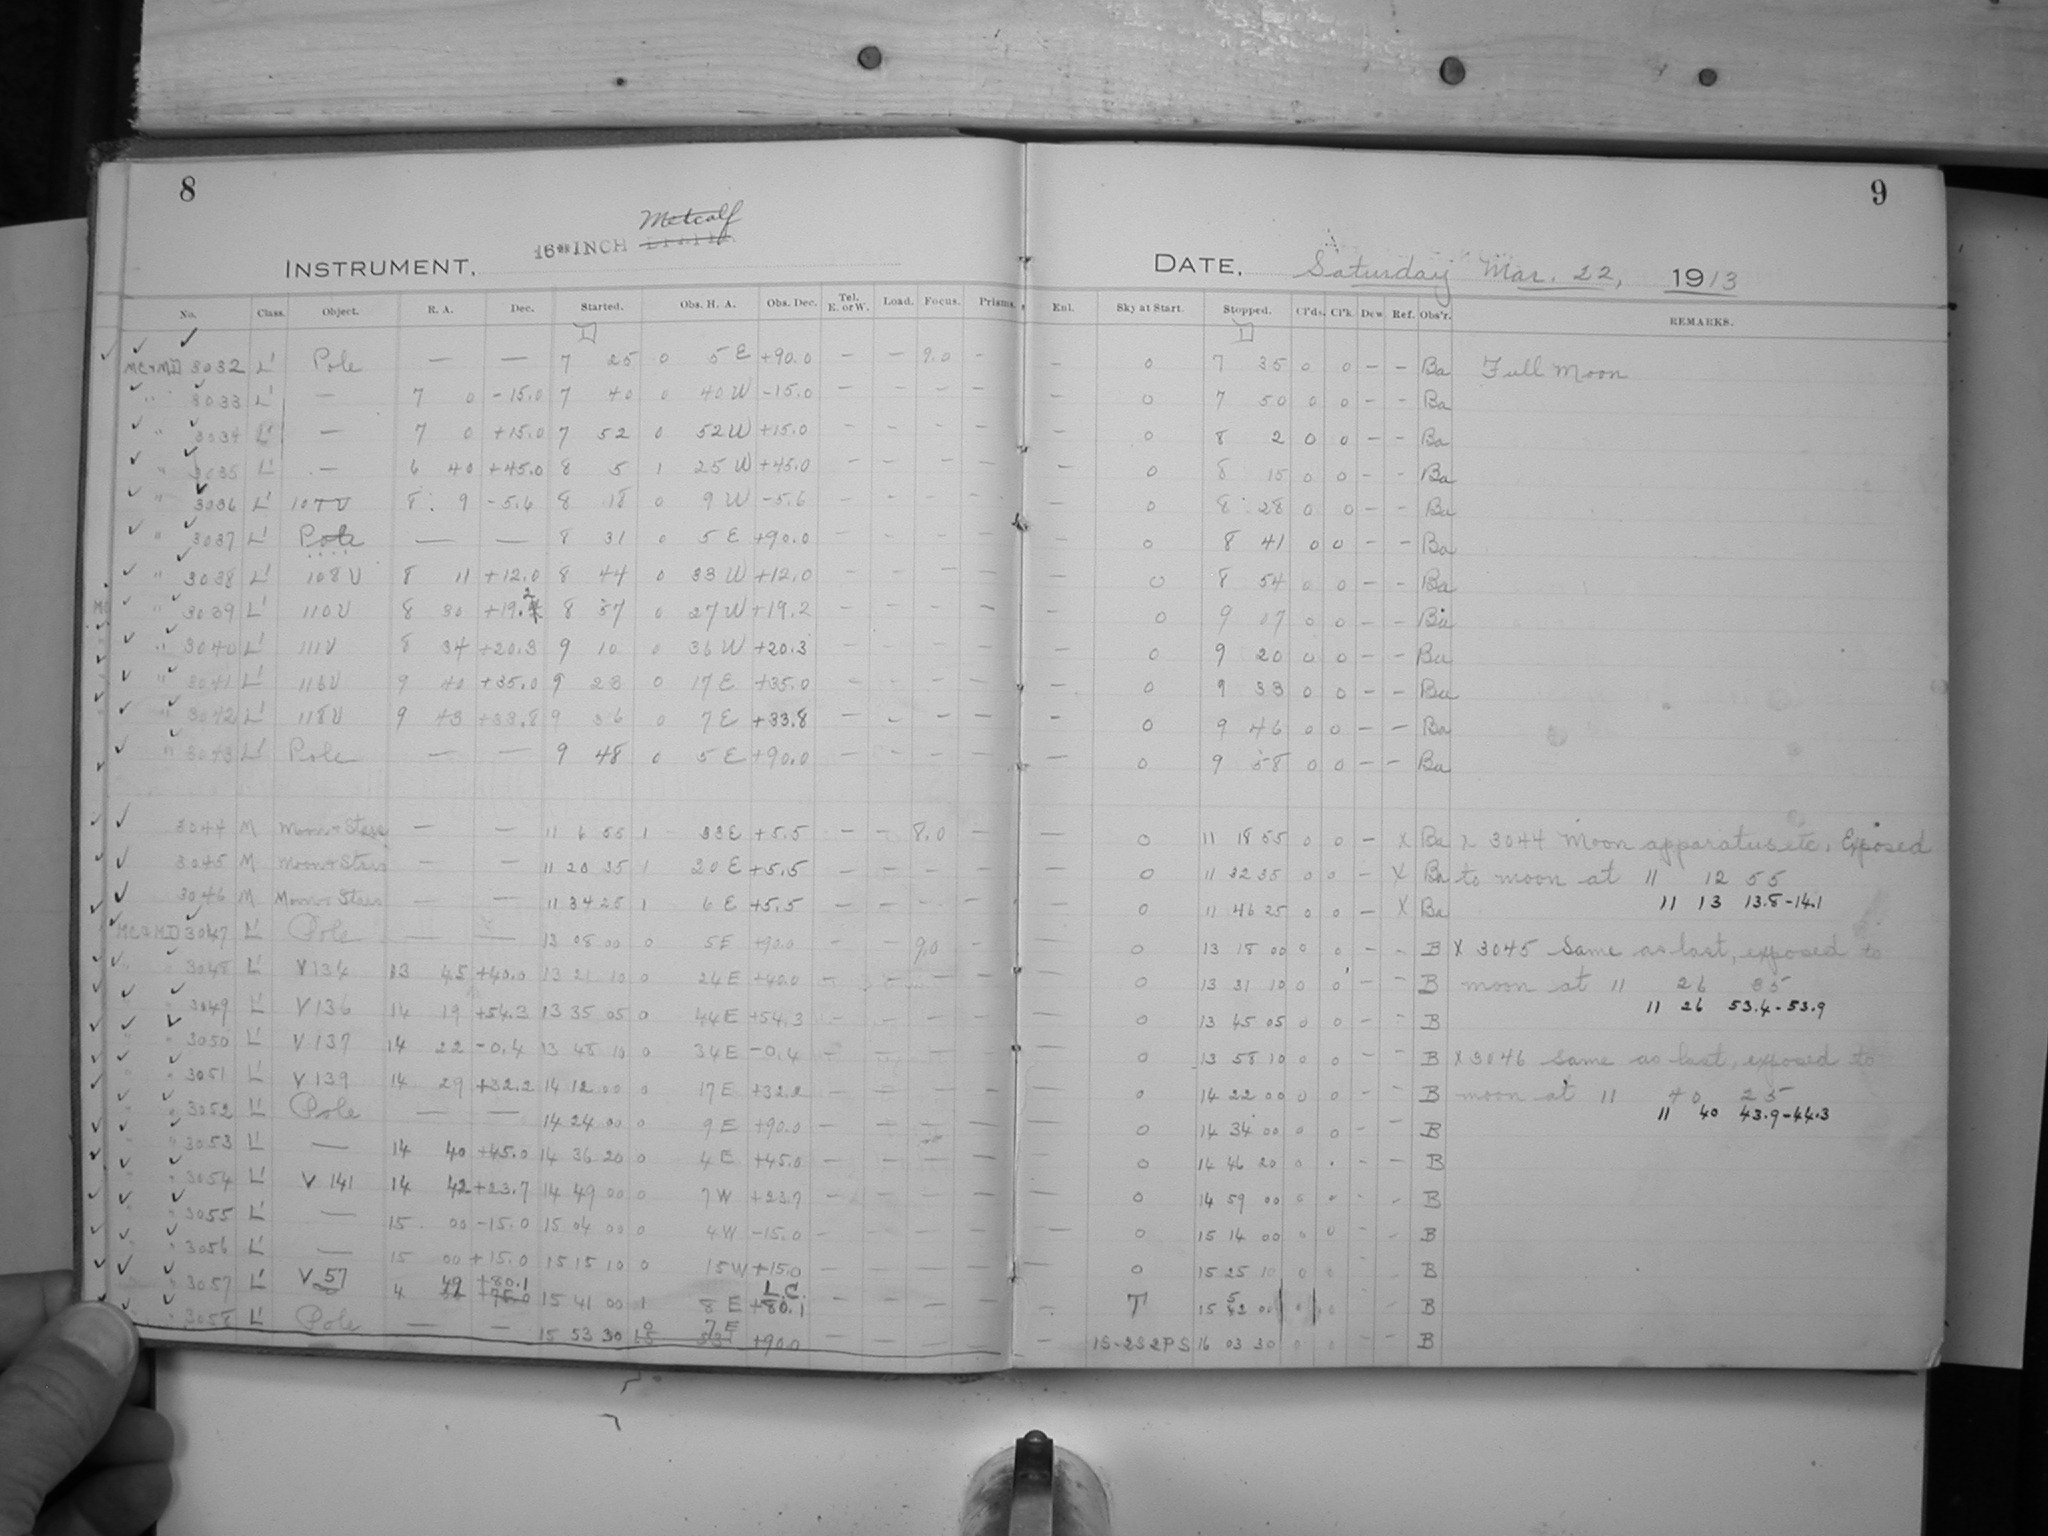 8
9
16 INCH Metcalf
INSTRUMENT.
DATE, Saturday Mar. 22, 1913
No. Class. Object. R. A. Dec. Started. Obs. H. A. Obs. Dec. Tel. E. or W. Load. Focus. Prisms. Enl. Sky at Start. Stopped. Cl'ds. Cl'k. Dew Ref. Obs'r. REMARKS.
3032 L' Pole — — 7 25 0 5 E +90.0 — — 9.0 — — 0 7 35 0 0 — — Ba Full Moon
" 3033 L' — 7 0 -15.0 7 40 0 40 W -15.0 — — — — — 0 7 50 0 0 — — Ba
" 3034 L' — 7 0 +15.0 7 52 0 52 W +15.0 — — — — — 0 8 2 0 0 — — Ba
" 3035 L' — 6 40 +45.0 8 5 1 25 W +45.0 — — — — — 0 8 15 0 0 — — Ba
" 3036 L' 107 U 8 9 -5.6 8 18 0 9 W -5.6 — — — — — 0 8 28 0 0 — — Ba
" 3037 L' Pole — — 8 31 0 5 E +90.0 — — — — — 0 8 41 0 0 — — Ba
" 3038 L' 108 U 8 11 +12.0 8 44 0 33 W +12.0 — — — — — 0 8 54 0 0 — — Ba
" 3039 L' 110 U 8 30 +19.2 8 57 0 27 W +19.2 — — — — — 0 9 07 0 0 — — Ba
" 3040 L' 111 U 8 34 +20.3 9 10 0 36 W +20.3 — — — — — 0 9 20 0 0 — — Ba
" 3041 L' 116 U 9 40 +35.0 9 23 0 17 E +35.0 — — — — — 0 9 33 0 0 — — Ba
" 3042 L' 118 U 9 43 +33.8 9 36 0 7 E +33.8 — — — — — 0 9 46 0 0 — — Ba
" 3043 L' Pole — — 9 48 0 5 E +90.0 — — — — — 0 9 58 0 0 — — Ba
3044 M Moon + Stars — — 11 6 55 1 33 E +5.5 — — 8.0 — 0 11 18 55 0 0 — X Ba X 3044 Moon apparatus etc. Exposed
3045 M Moon + Stars — — 11 20 35 1 20 E +5.5 — — — — — 0 11 32 35 0 0 — X Ba to moon at 11 12 55
11 13 13.8-14.1
3046 M Moon + Stars — — 11 34 25 1 6 E +5.5 — — — — — 0 11 46 25 0 0 — X Ba
MC & MD 3047 L' Pole — — 13 08 00 0 5 E +90.0 — — 9.0 — — 0 13 18 00 0 0 — — B X 3045 Same as last, exposed to
" 3048 L' V 134 13 45 +40.0 13 21 10 0 24 E +40.0 — — — — — 0 13 31 10 0 0 — — B moon at 11 26 35
11 26 53.4-53.9
" 3049 L' V 136 14 19 +54.3 13 35 05 0 44 E +54.3 — — — — — 0 13 45 05 0 0 — — B
" 3050 L' V 137 14 22 -0.4 13 48 10 0 34 E -0.4 — — — — — 0 13 58 10 0 0 — — B X 3046 Same as last, exposed to
" 3051 L' V 139 14 29 +32.2 14 12 00 0 17 E +32.2 — — — — — 0 14 22 00 0 0 — — B moon at 11 40 25
11 40 43.9-44.3
" 3052 L' Pole — — 14 24 00 0 9 E +90.0 — — — — — 0 14 34 00 0 0 — — B
" 3053 L' — 14 40 +45.0 14 36 20 0 4 E +45.0 — — — — — 0 14 46 20 0 — — B
" 3054 L' V 141 14 42 +23.7 14 49 00 0 7 W +23.7 — — — — — 0 14 59 00 0 0 — — B
" 3055 L' — 15 00 -15.0 15 04 00 0 4 W -15.0 — — — — — 0 15 14 00 0 0 — — B
" 3056 L' — 15 00 +15.0 15 15 10 0 15 W +15.0 0 15 25 10 0 0 B
" 3057 L' V 57 4 49 +80.1 15 41 00 1 8 E L.C. +80.1 — — — — T 15 52 00 0 0 — B
" 3058 L' Pole — — 15 53 30 0 7 E +90.0 — — — — — 1S-2S2PS 16 03 30 0 0 — — B